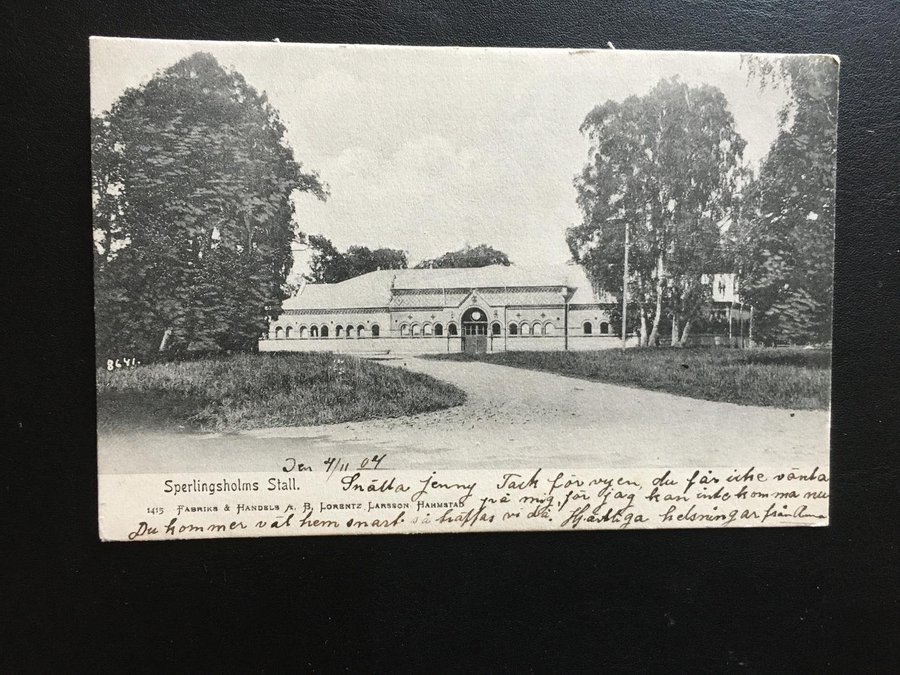 8641.
Den 4/11 07
Sperlingsholms Stall.
Snälla Jenny Tack för vyen, du får icke vänta
1415 FABRIKS & HANDELS A. B. LORENTZ LARSSON HALMSTAD
på mig, för jag kan inte komma nu
Du kommer väl hem snart så träffas vi då. Hjärtliga helsningar från Anna